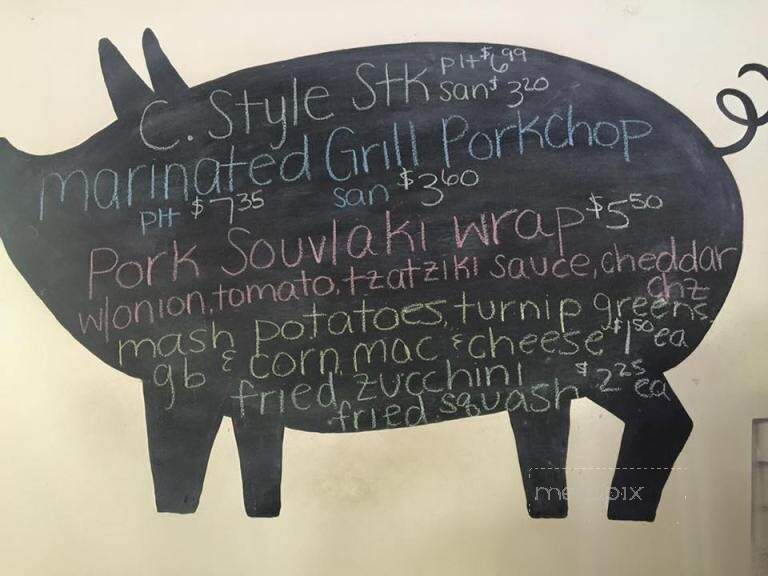 C. Style Stk plt $6.99
san $3.20
marinated Grill Porkchop
plt $7.35 san $3.60
Pork Souvlaki wrap $5.50
w/onion, tomato, tzatziki sauce, cheddar
chz
mash potatoes, turnip greens
gb & corn, mac & cheese $1.50 ea
fried zucchini $2.25 ea
fried squash